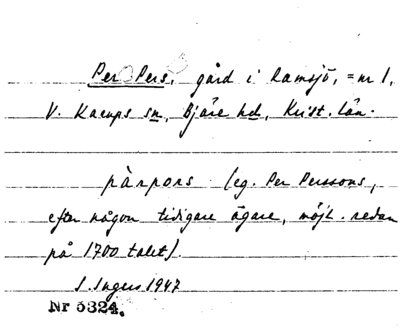 Per Pers, gård i Ramsjö, = nr 1,
V. Karups sn, Bjäre hd, Krist. län.
pàrpɒrs (eg. Per Perssons,
efter någon tidigare ägare, möjl. redan
på 1700 talet).
S. Ingers 1947
Nr 5324.